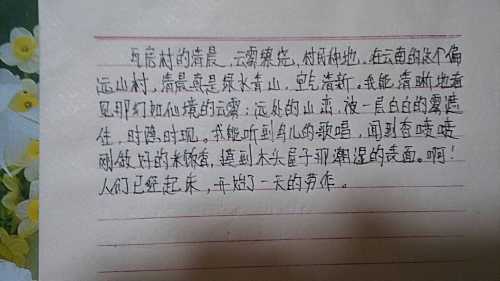 瓦房村的清晨，云雾缭绕，村风种地，在云南的这个偏
远山村，清晨真是绿水青山，空气清新。我能清晰地看
见那幻如仙境的云雾；远处的山峦，被一层白白的雾遮
住，时隐时现。我能听到鸟儿的歌唱，闻到香喷喷
刚做好的米饭香，摸到木头屋子那潮湿的表面。啊！
人们已经起床，开始了一天的劳作。